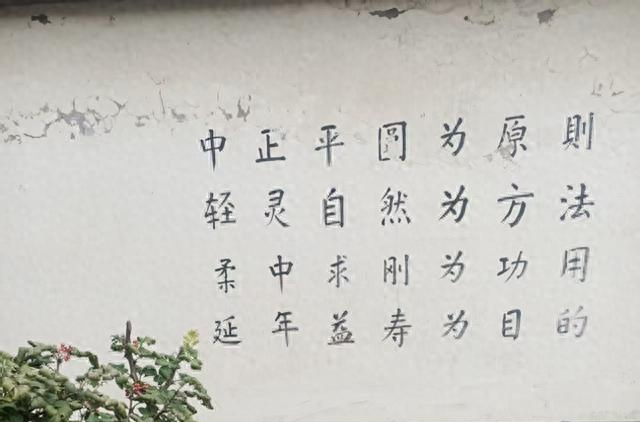 中正平圆为原則
轻灵自然为方法
柔中求刚为功用
延年益寿为目的